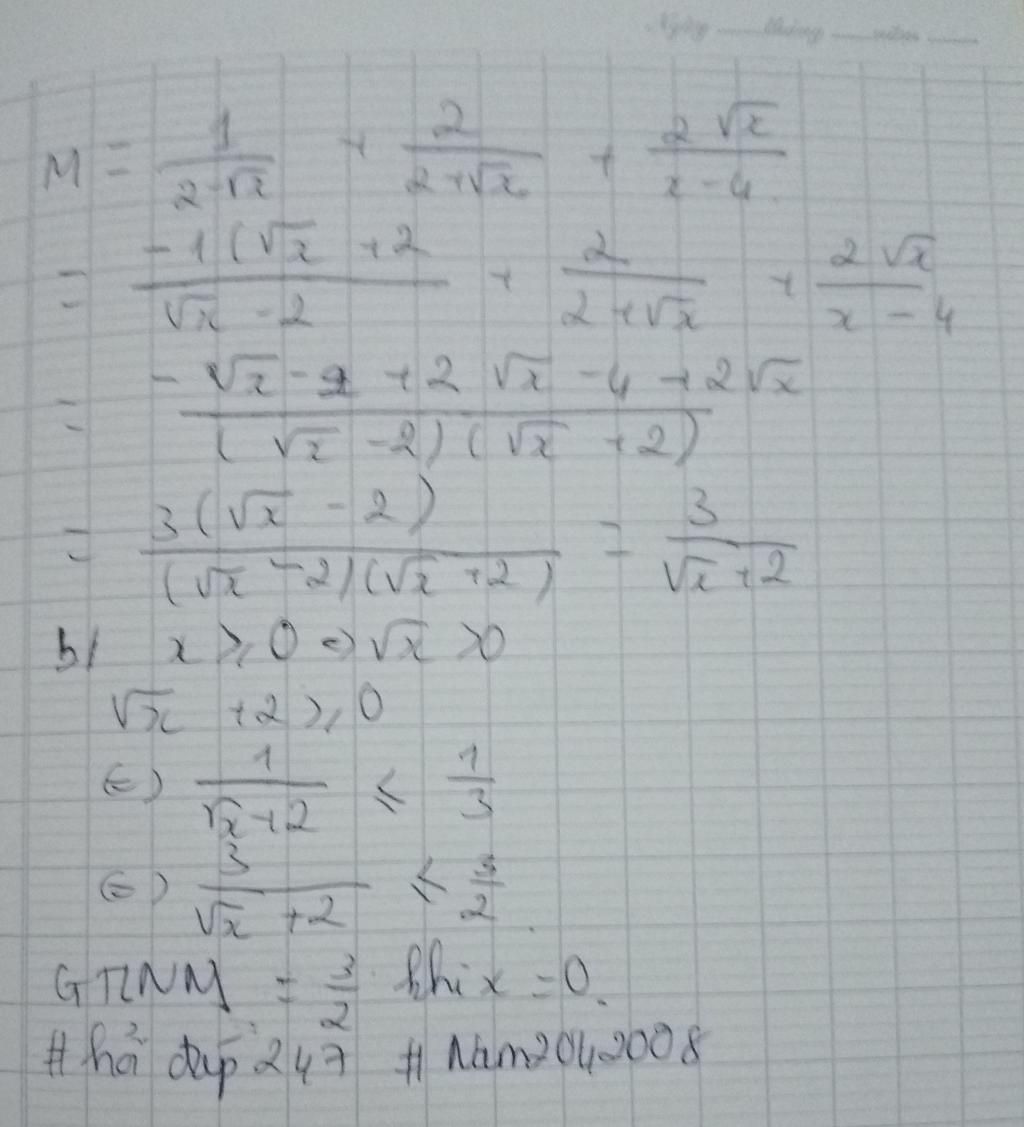 Ngày tháng năm
M = 1/(2-√x) + 2/(2+√x) + 2√x/(x-4)
= -1(√x +2/(√x -2) + 2/(2+√x) + 2√x/(x-4)
= (-√x-2 +2√x -4 +2√x)/((√x -2)(√x +2))
= 3(√x -2)/((√x -2)(√x +2)) = 3/(√x+2)
b/ x ⩾ 0 => √x >0
√x +2 ⩾ 0
(=) 1/(√x+2) ⩽ 1/3
(=) 3/(√x +2) ⩽ 3/2.
GTLNM = 3/2 khi x =0.
# hỏi đáp 247 # Nam2042008